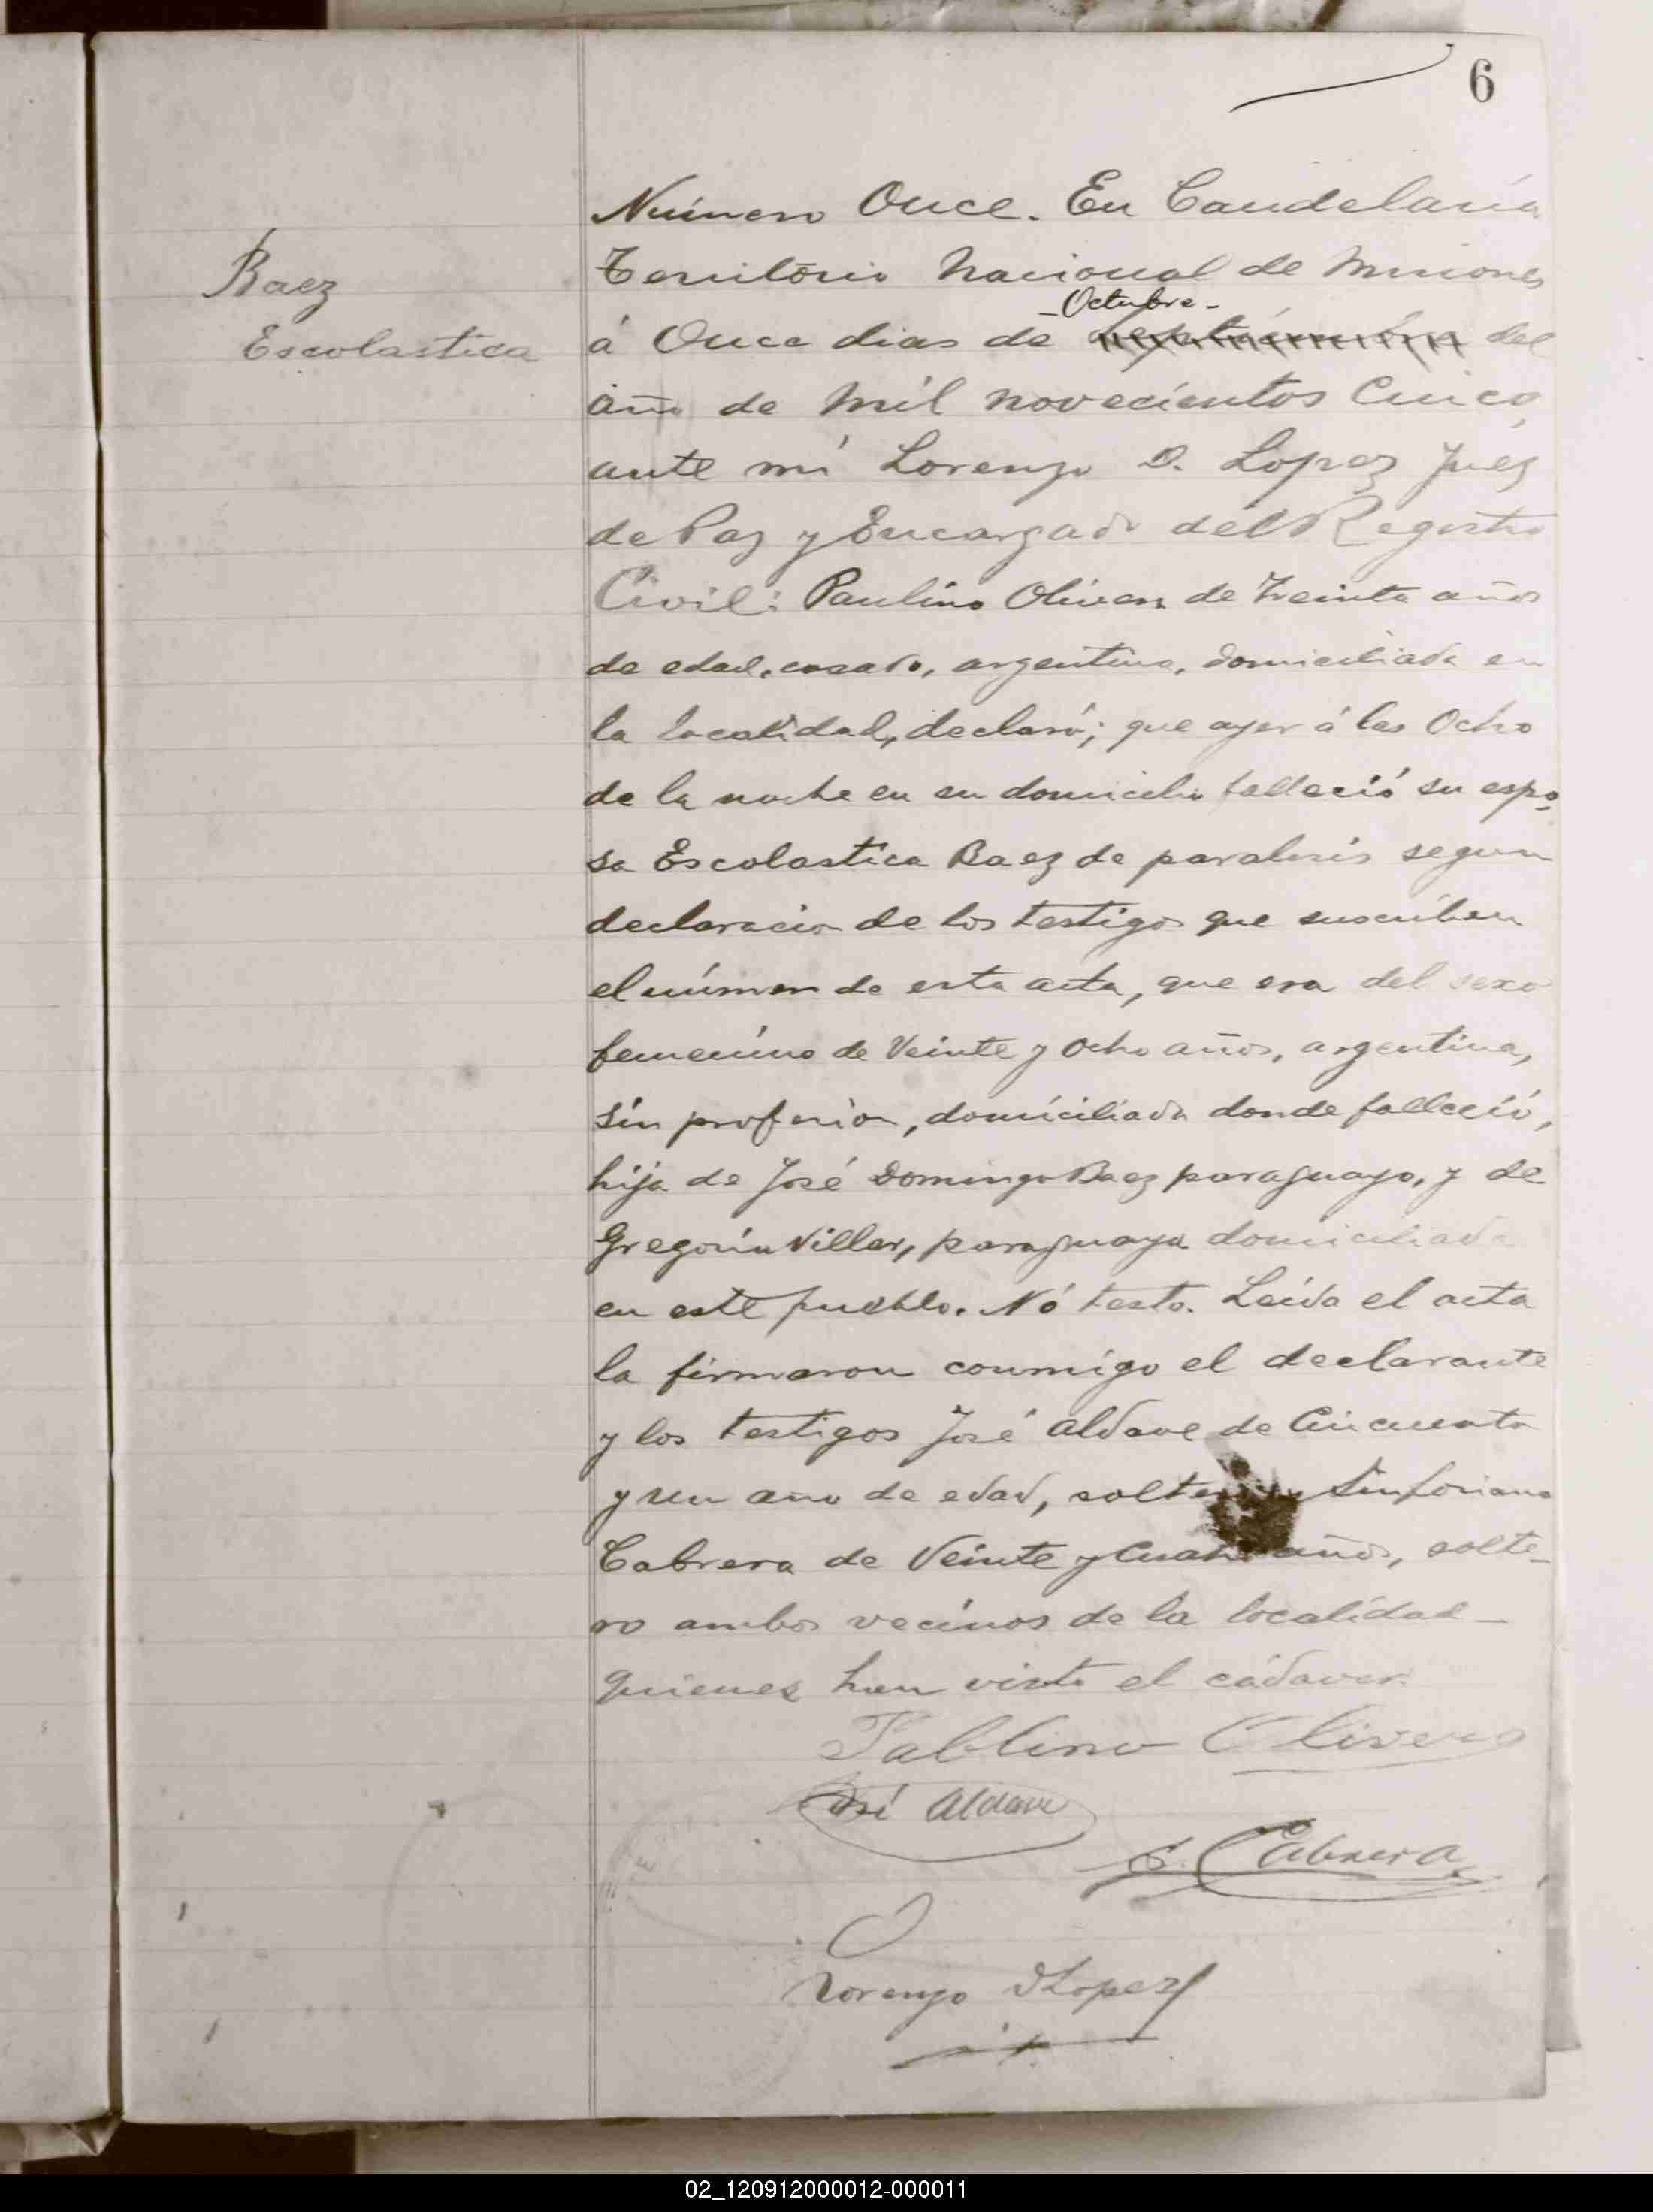 6
Baez
Escolastica
Número Once. En Candelaria
Territorio Nacional de Misiones
- Octubre -
á Once dias de septiembre del
año de mil novecientos Cinco,
ante mi Lorenzo D. Lopez Juez
de Paz y Encargado del Registro
Civil: Paulino Olivera de Treinta años
de edad, casado, argentino, domiciliado en
la localidad, declaró; que ayer á las Ocho
de la noche en su domicilio falleció su espo-
sa Escolastica Baez de paralisis segun
declaracion de los testigos que suscriben
el número de esta acta, que era del sexo
femenino de Veinte y ocho años, argentina,
sin profesion, domiciliada donde falleció,
hija de José Domingo Baez paraguayo, y de
Gregoria Villar, paraguaya domiciliada
en este pueblo. Nó testo. Leida el acta
la firmaron conmigo el declarante
y los testigos José Aldave de Cincuenta
y un año de edad, soltero y Sinforiano
Cabrera de Veinte y Cuatro años, solte-
ro ambos vecinos de la localidad -
quienes han visto el cádaver.
Pablino Olivera
José Aldave
S. Cabrera
Lorenzo D Lopez
02_120912000012-000011